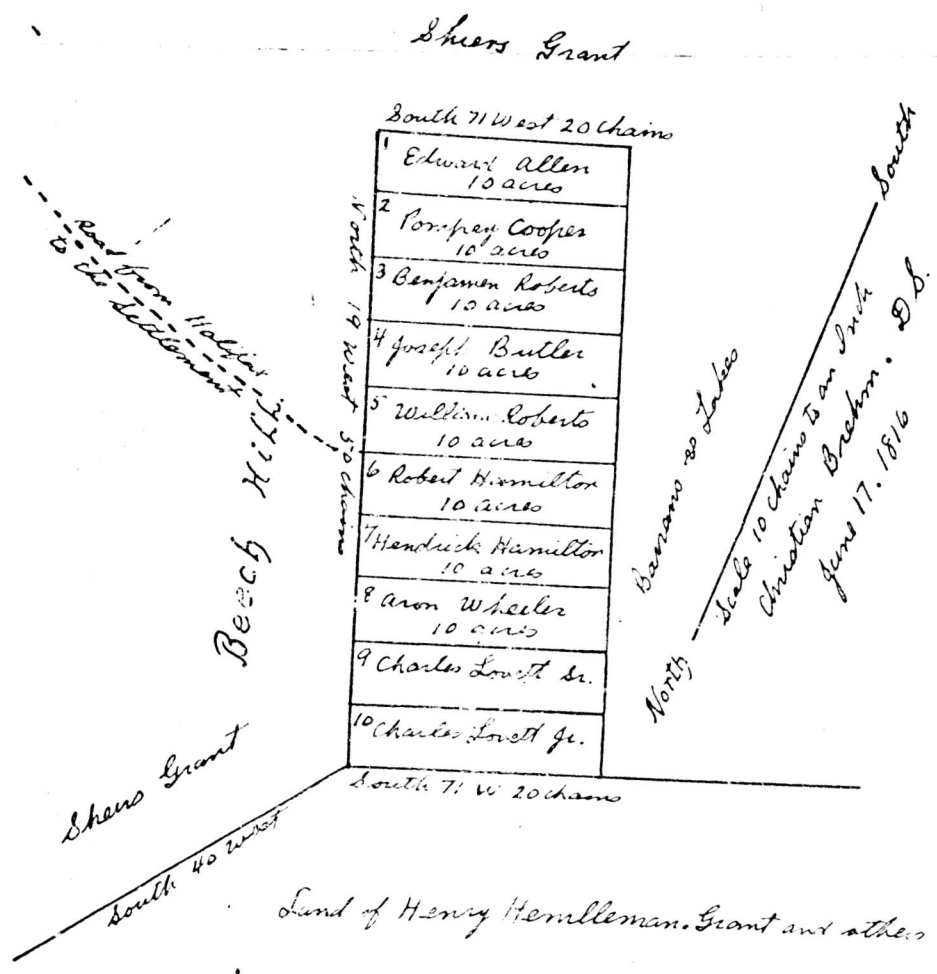 Shiers Grant
South 71 West 20 Chains
1 Edward Allen
10 acres
2 Pompey Cooper
10 acres
3 Benjamen Roberts
10 acres
4 Joseph Butler
10 acres
5 William Roberts
10 acres
6 Robert Hamilton
10 acres
7 Hendrick Hamilton
10 acres
8 Aron Wheeler
10 acres
9 Charles Lovett Sr.
10 Charles Lovett Jr.
South 71 W 20 chains
North 19 West 50 Chains
Road from Halifax
to the Settlement
Beech Hill
Shiers Grant
South 40 West
Lakes
North
South
Scale 10 Chains to an Inch
Christian Brehm. D S.
June 17. 1816
Land of Henry Grant and others